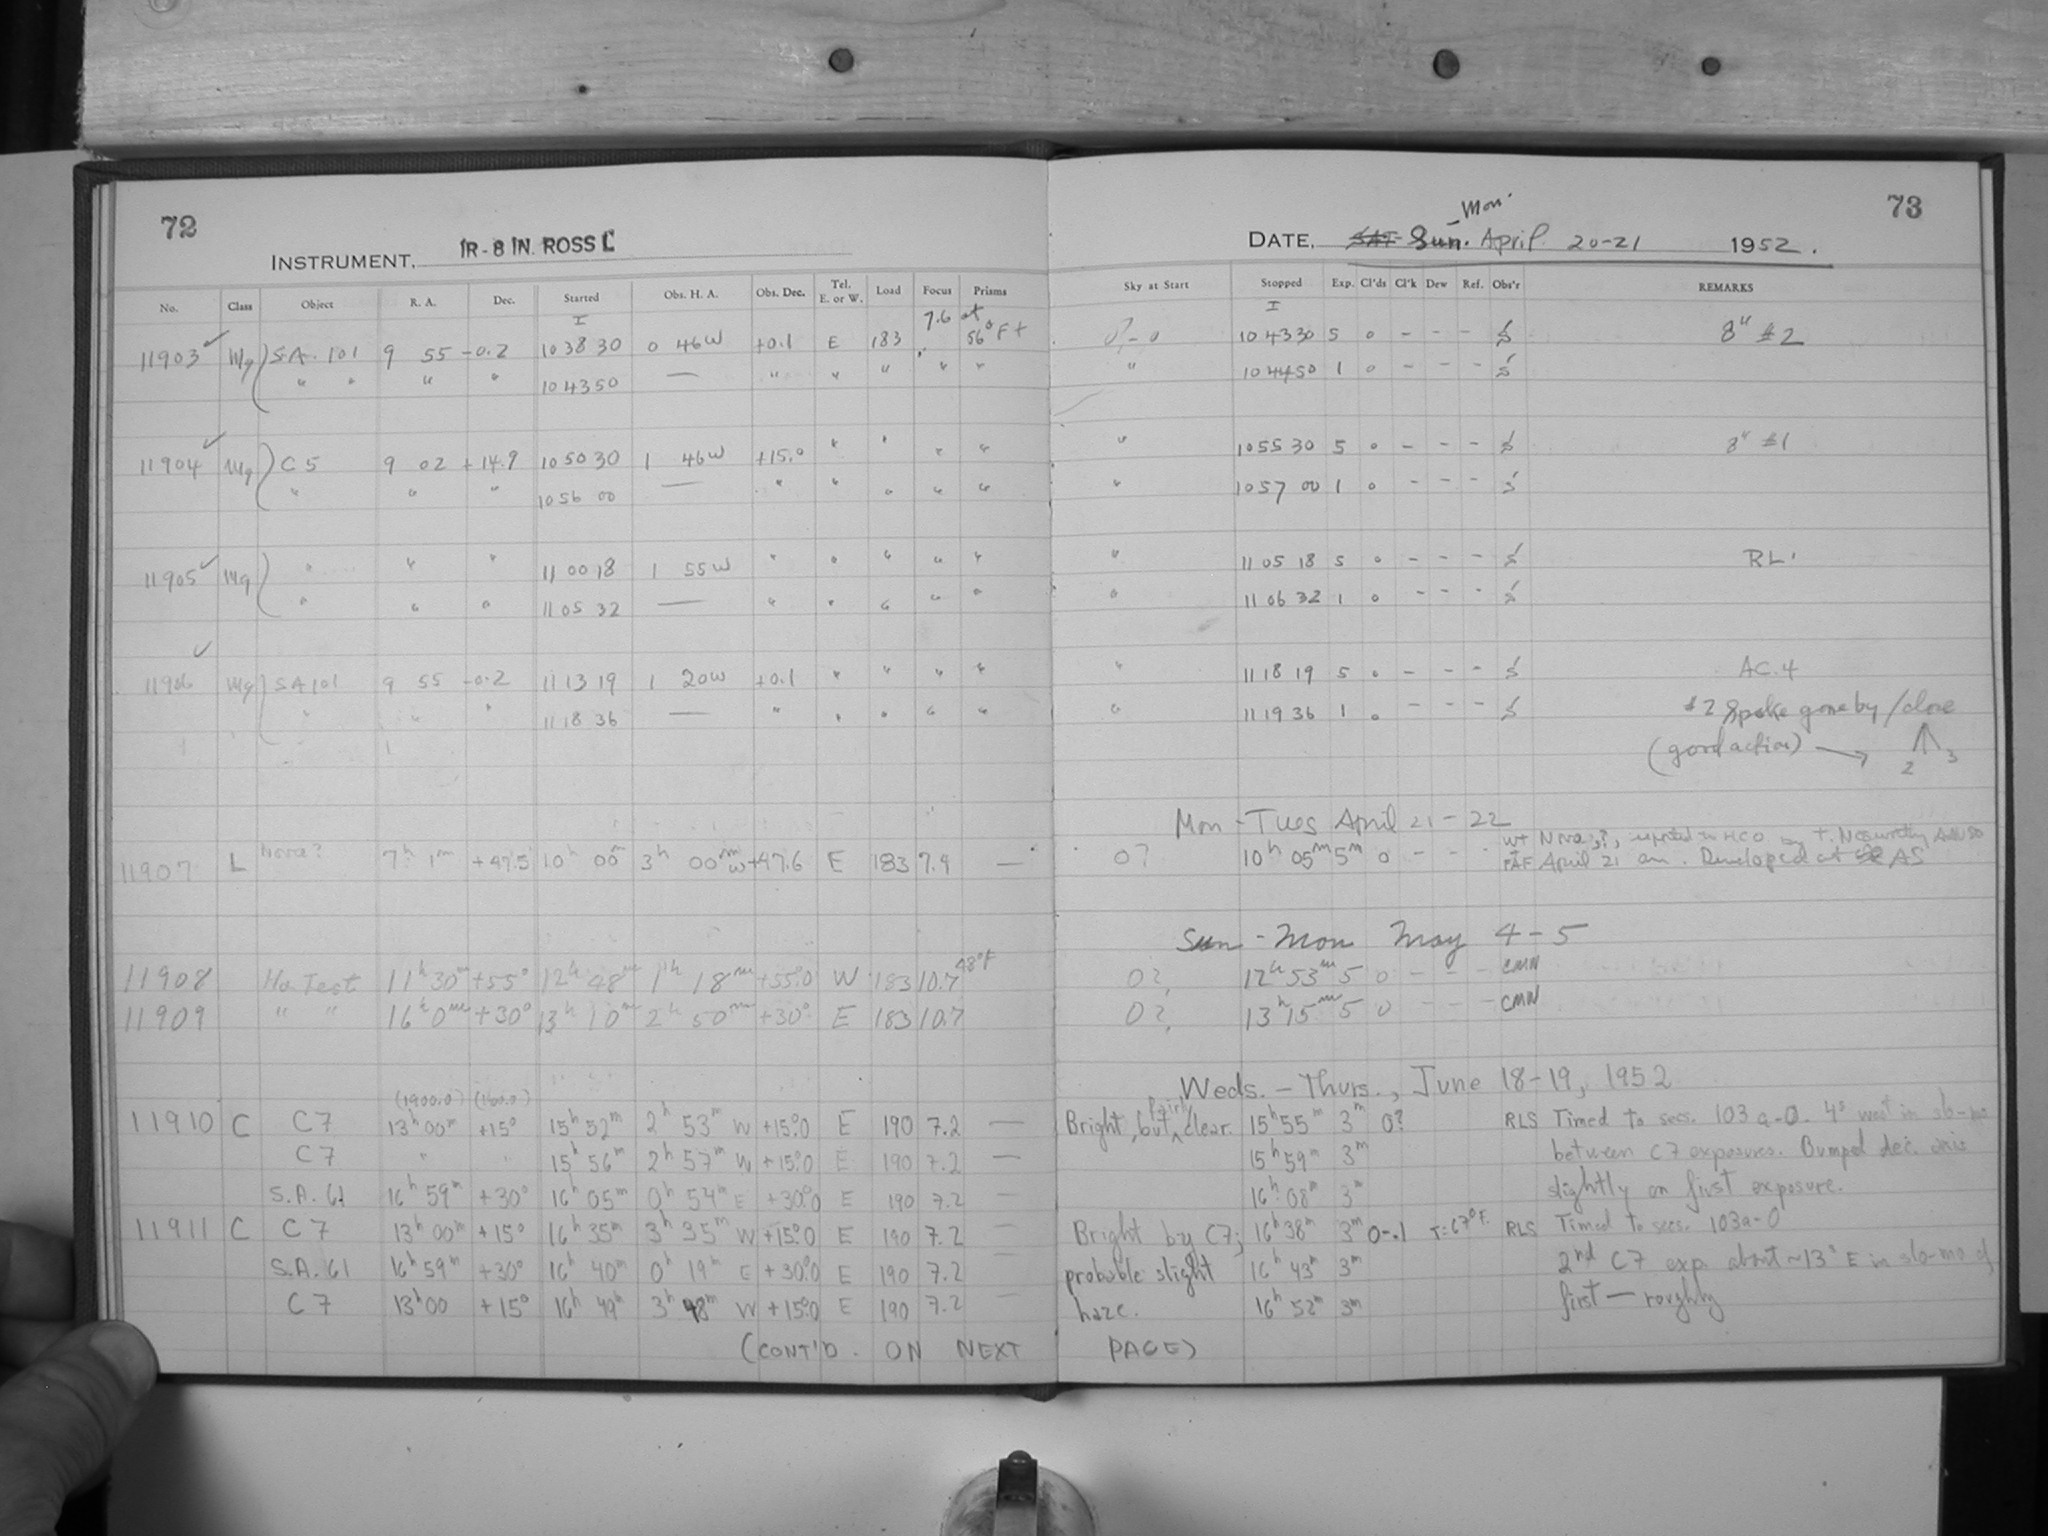 72
INSTRUMENT, IR-8 IN. ROSS L
No. Class Object R. A. Dec. Started Obs. H. A. Obs. Dec. Tel. E. or W. Load Focus Prisms
I 7.6 at
11903 ✓ Mg S.A. 101 9 55 -0.2 10 38 30 0 46W +0.1 E 183 56° F+
" " " " 10 43 50 — " " " " "
11904 ✓ Mg C 5 9 02 +14.9 10 50 30 1 46W +15.0 " " " "
" " " 10 56 00 — " " " " "
11905 ✓ Mg " " " 11 00 18 1 55W " " " " "
" " " 11 05 32 — " " " " "
11906 ✓ Mg SA 101 9 55 -0.2 11 13 19 1 20W +0.1 " " " "
" " " 11 18 36 — " " " " "
11907 L Nova? 7h 1m +47.5 10h 00m 3h 00m W +47.6 E 183 7.9 —
48°F
11908 Ha Test 11h 30m +55° 12h 48m 1h 18m +55.0 W 183 10.7
11909 " " 16h 0m +30° 13h 10m 2h 50m +30° E 183 10.7
(1900.0)
11910 C C7 13h 00m +15° 15h 52m 2h 53m W +15.0 E 190 7.2 —
C7 " " 15h 56m 2h 57m W +15.0 E 190 7.2 —
S.A. 61 16h 59m +30° 16h 05m 0h 54m E +30.0 E 190 7.2 —
11911 C C7 13h 00m +15° 16h 35m 3h 35m W +15.0 E 190 7.2 —
S.A. 61 16h 59m +30° 16h 40m 0h 19m E +30.0 E 190 7.2 —
C7 13h 00 +15° 16h 49m 3h 48m W +15.0 E 190 7.2 —
(CONT'D. ON NEXT
73
DATE, SAT Sun. - Mon. April 20-21 1952.
Sky at Start Stopped Exp. Cl'ds Cl'k Dew Ref. Obs'r REMARKS
I
0-0 10 43 30 5 0 - - - S 8" #2
" 10 44 50 1 0 - - - S
" 10 55 30 5 0 - - - S 8" #1
" 10 57 00 1 0 - - - S
" 11 05 18 5 0 - - - S RL
" 11 06 32 1 0 - - - S
" 11 18 19 5 0 - - - S AC. 4
" 11 19 36 1 0 - - - S #2 Spoke gone by / close
(good action) → 2 3
Mon - Tues April 21-22
Nova?, reported to HCO by T. AAVSO
0? 10h 05m 5m 0 - - - April 21 am. Developed at AS
Sun - Mon May 4-5
0?, 12h 53m 5 0 - - - CMW
0?, 13h 15m 5 0 - - - CMW
Weds. - Thurs., June 18-19, 1952
Bright, but fairly clear. 15h 55m 3m 0? RLS Timed to secs. 103a-O. 4s west in slo-mo
15h 59m 3m between C7 exposures. Bumped dec. axis
16h 08m 3m slightly on first exposure.
Bright by C7; 16h 38m 3m 0-.1 T=67°F. RLS Timed to secs. 103a-O
probable slight 16h 43m 3m 2nd C7 exp. about ~13s E in slo-mo of
haze. 16h 52m 3m first — roughly
PAGE)